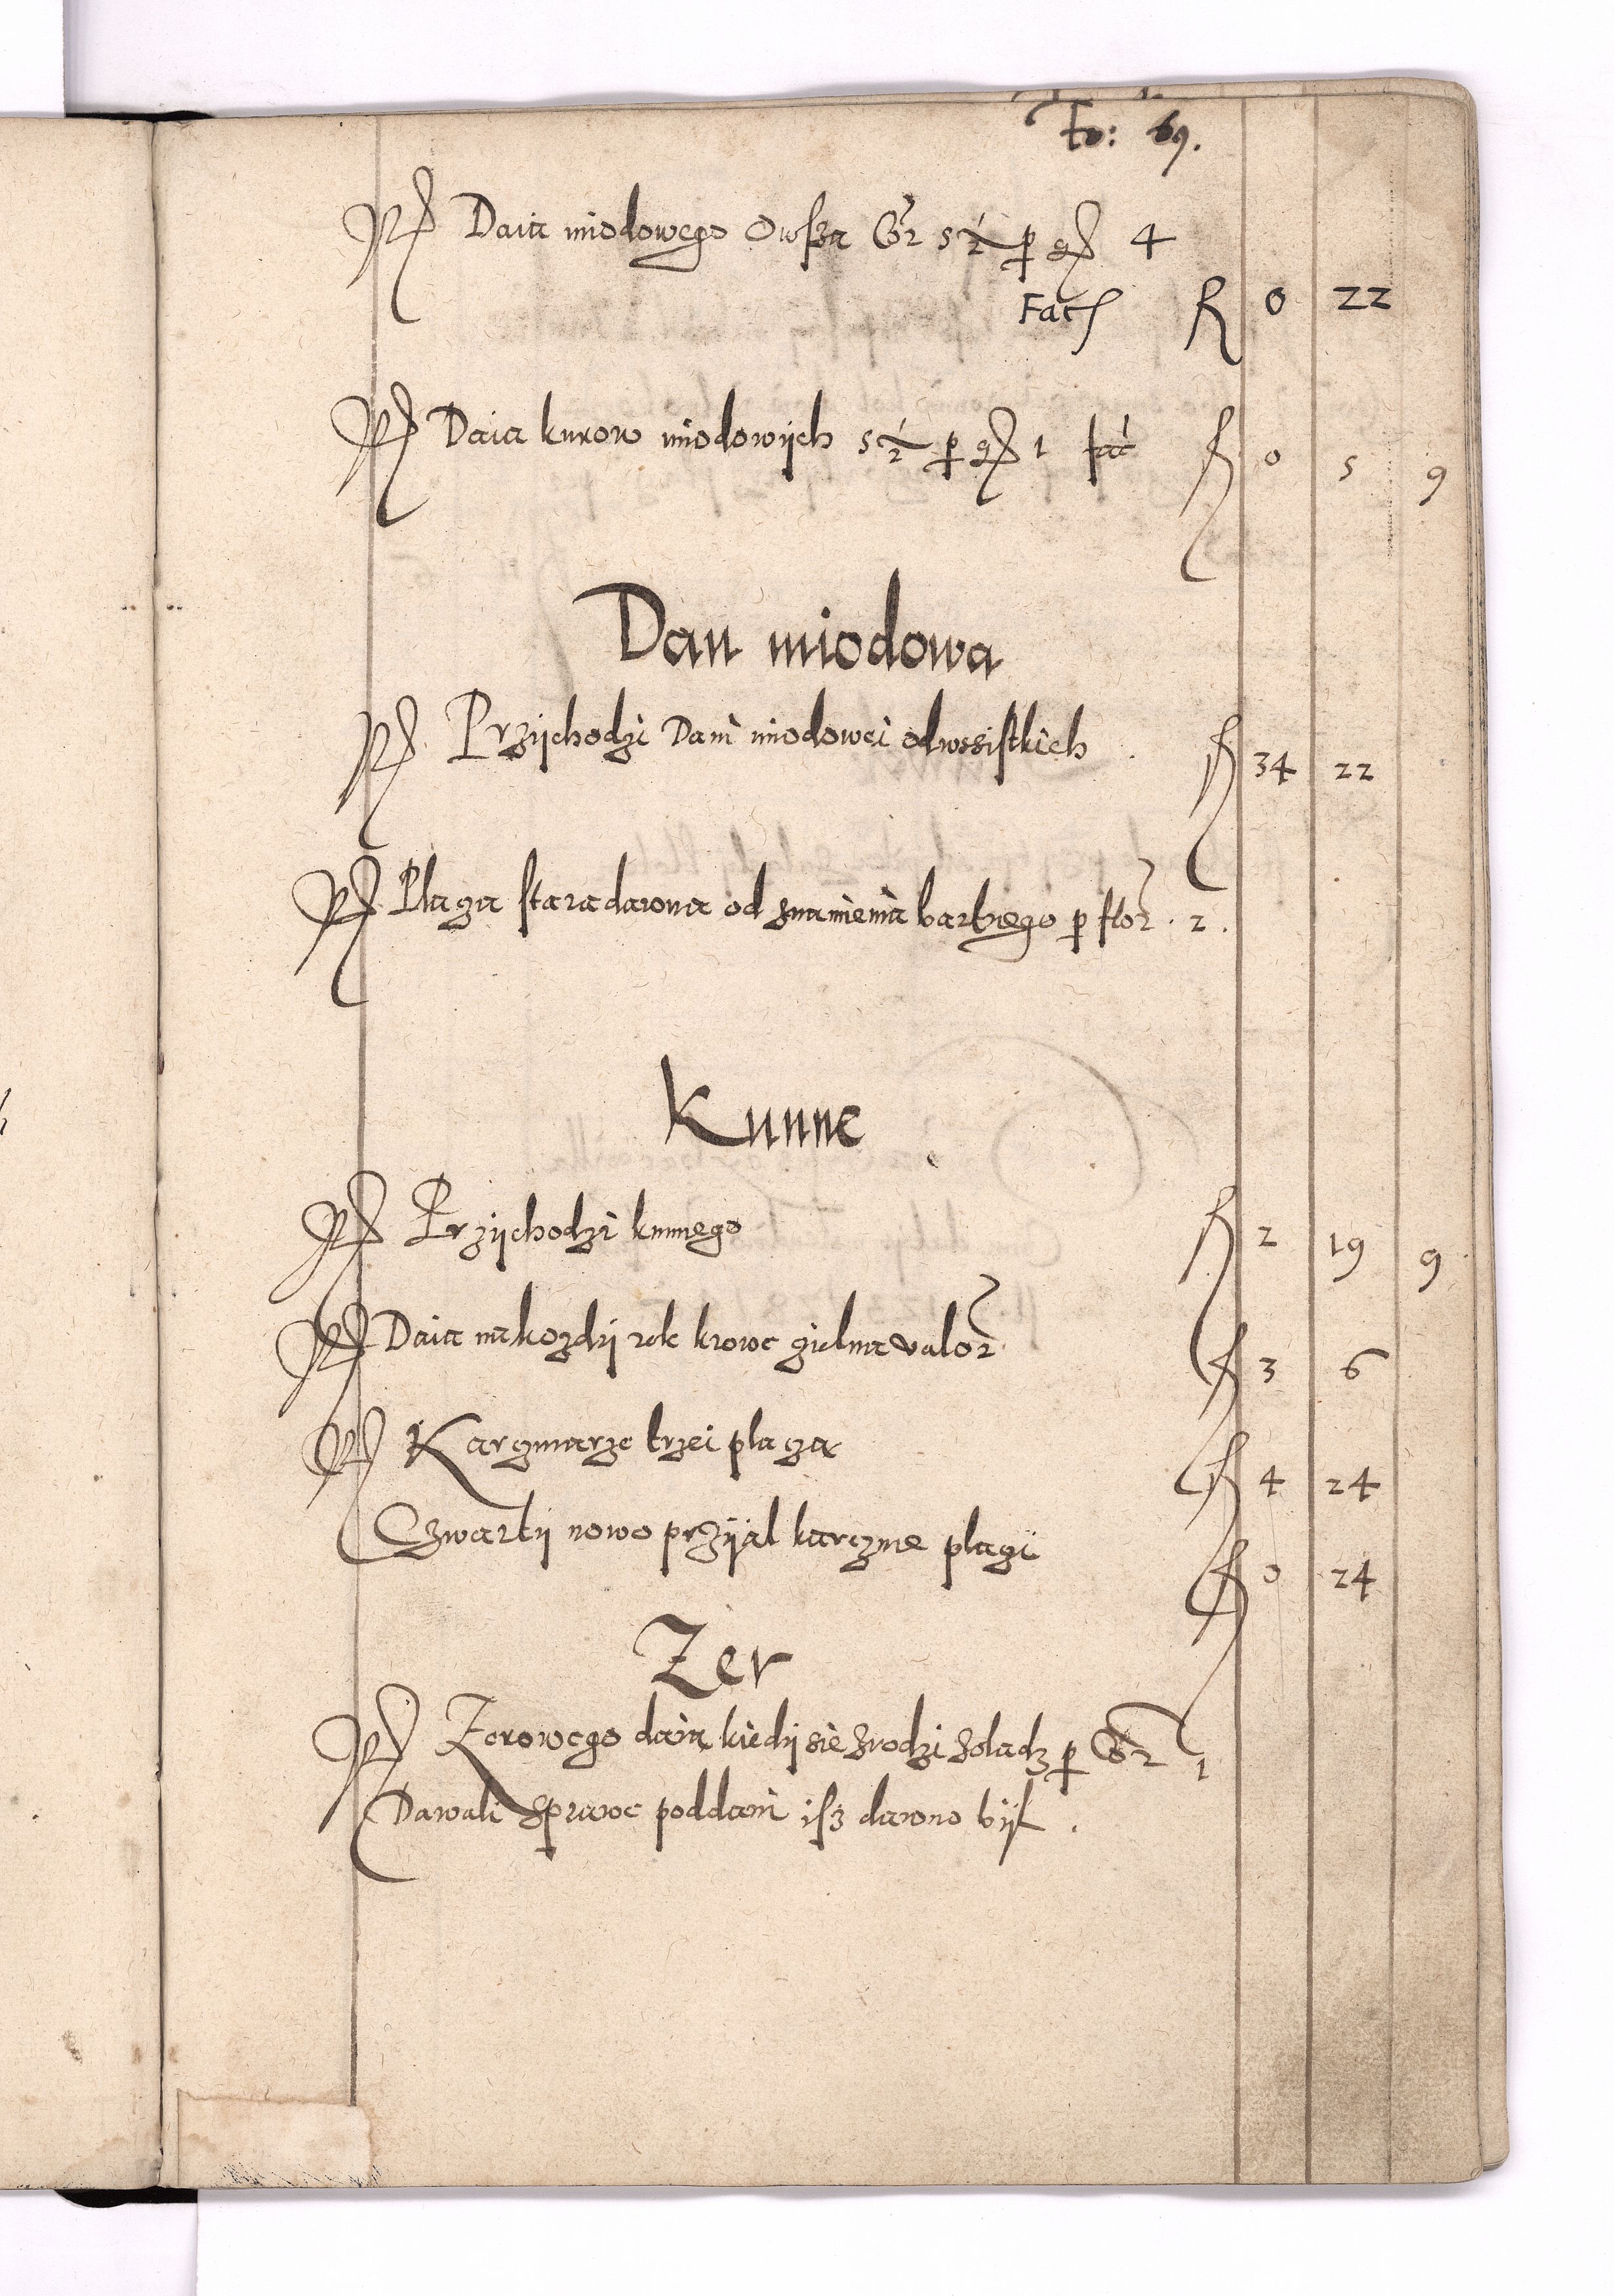 Fo: 69.
Daia miodowego Owssa Cor 5½ p gr 4
Fac fl 0 22
Daia kurow miodowijch 5½ p gr 1 fac fl 0 5 9
Dan miodowa
Przijchodzi Dani miodowei odwssistkich fl 34 22
Placza staradawna od znamienia bartnego p flor 2.
Kunne
Przijchodzi kunnego fl 2 19 9
Daia na kozdij rok krowe gielna valor fl 3 6
Karczmarze trzei placza fl 4 24
Czwartij nowo przijal karczme placzi fl 0 24
Zer
Zerowego daia kiedij sie zrodzi zoladz p Cor 1
Dawali sprawe poddani isz dawno bijl.